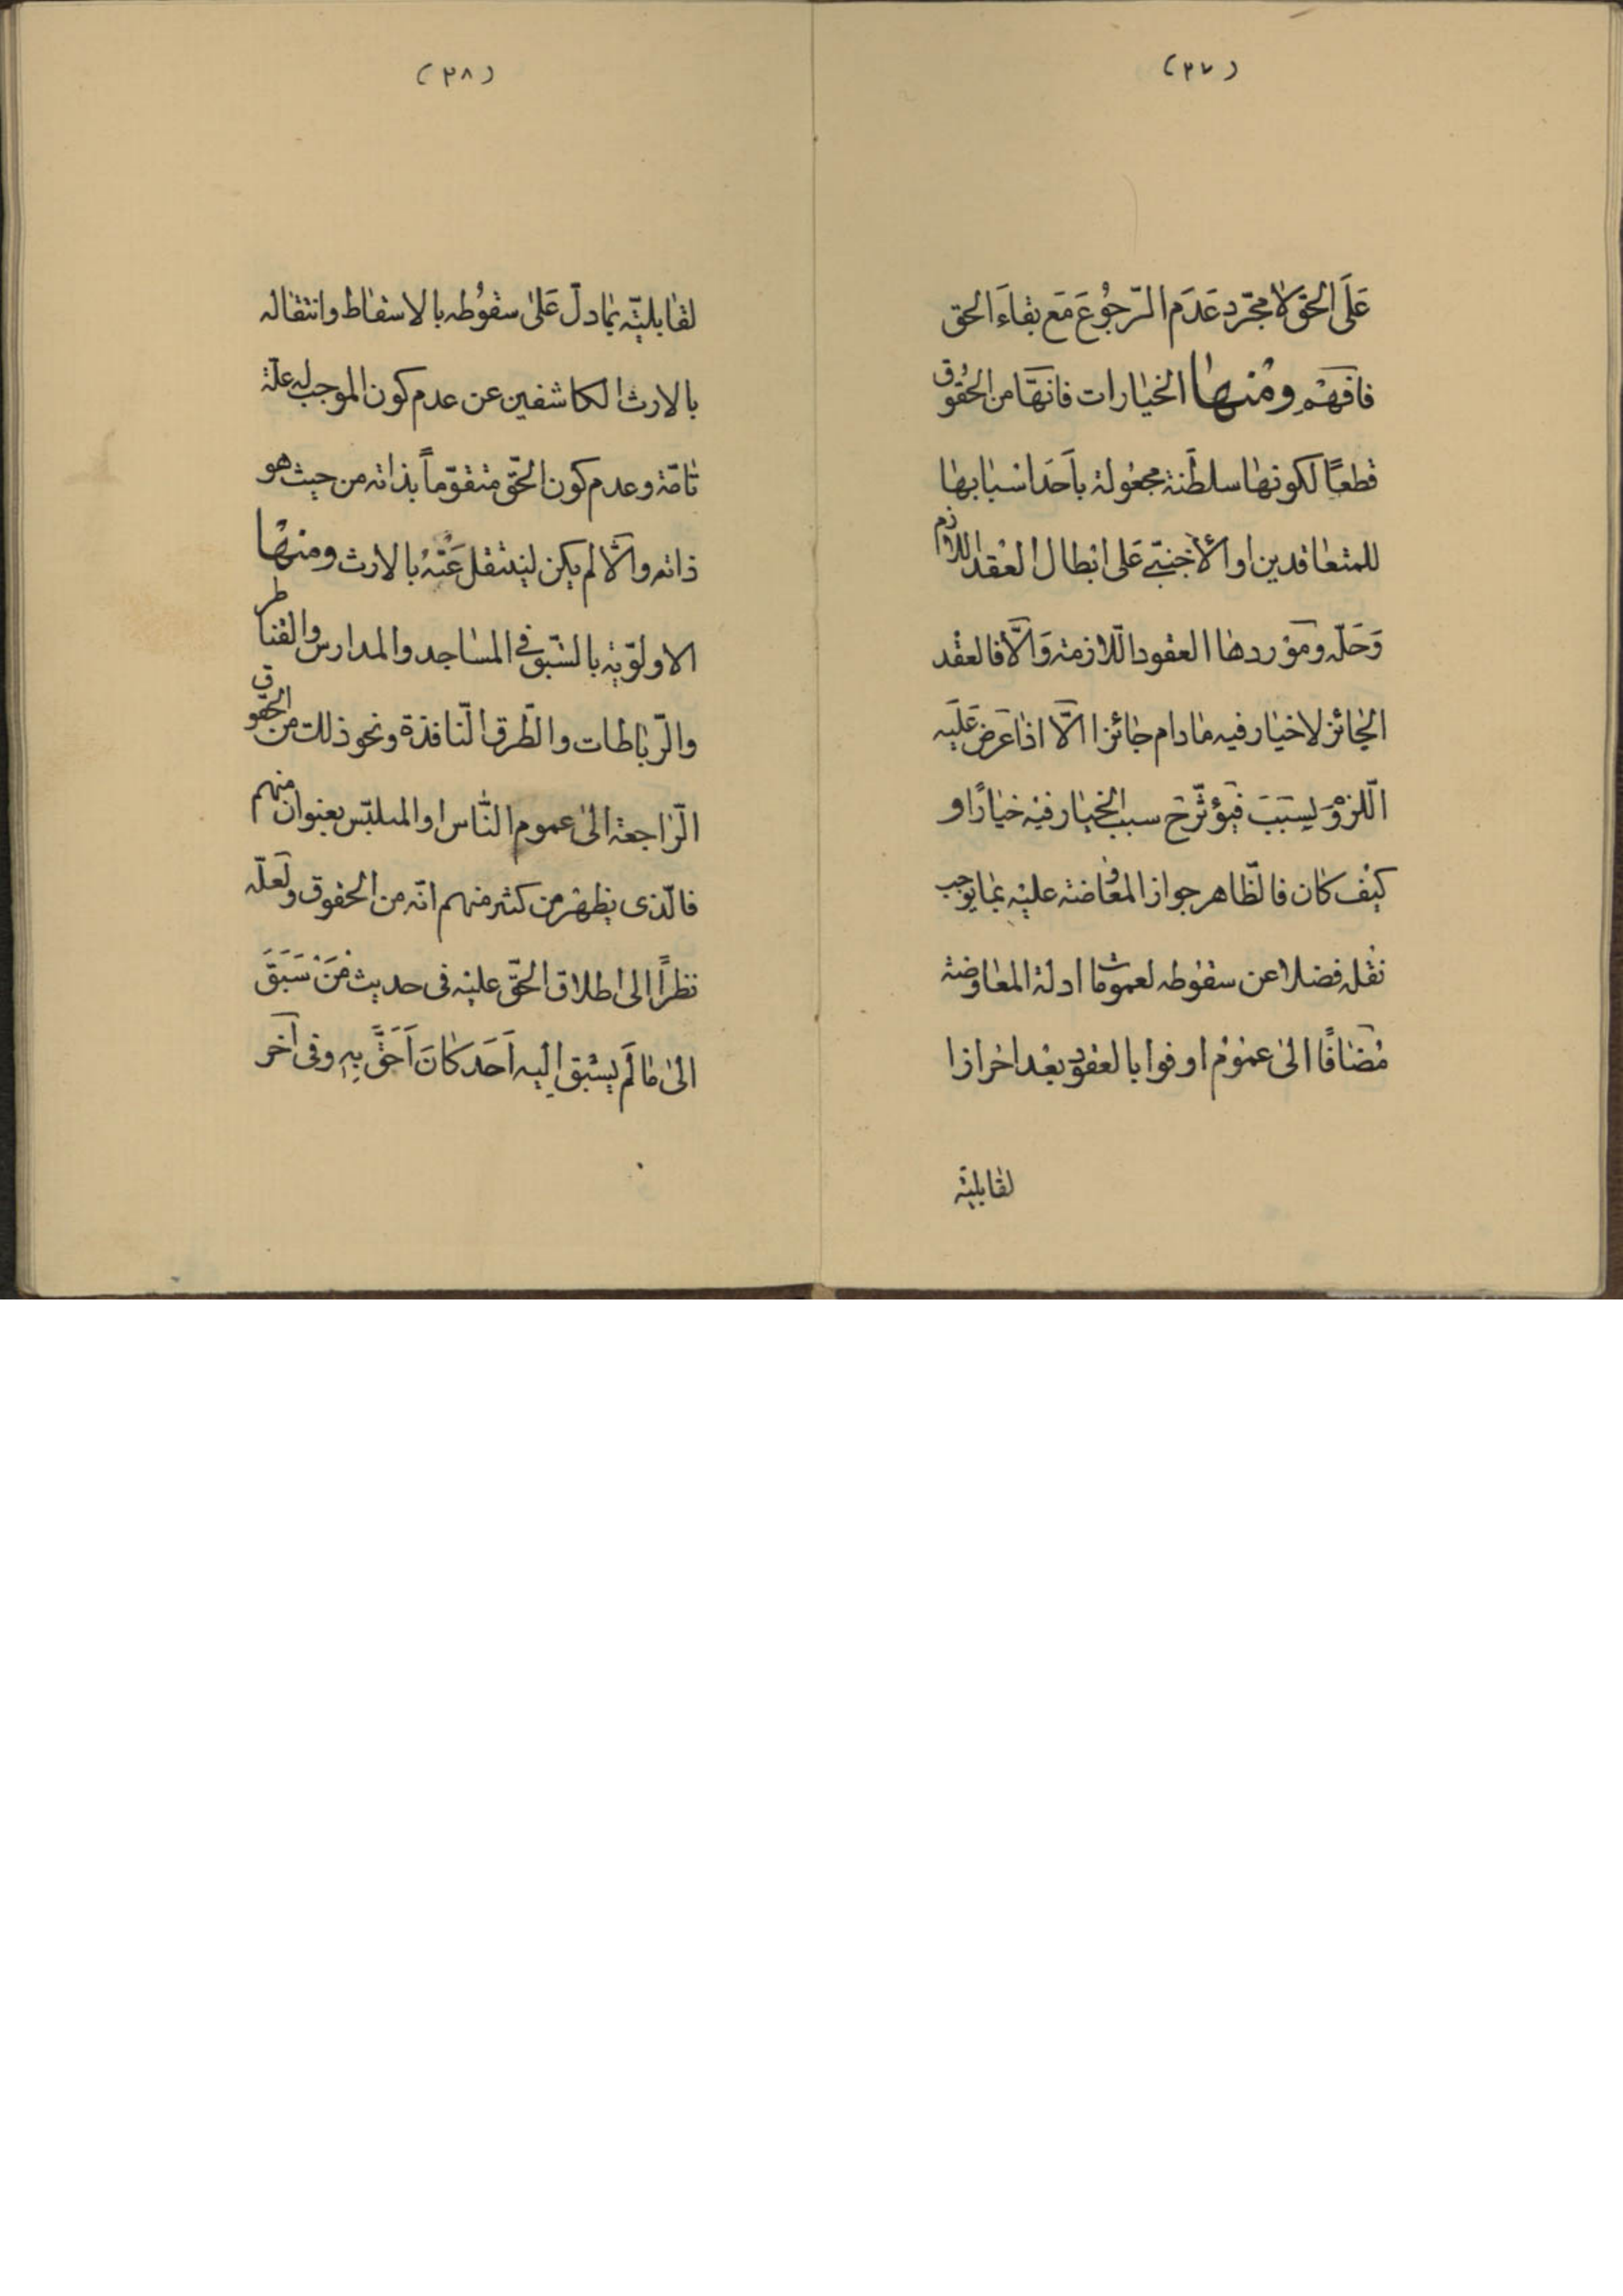 (٣٧)
عَلَى الحَقّ لا مجرّد عَدَم الرّجُوُع مَع بقاءَ الحق
فافهَمْ ومُنها الخيارات فانهَّا من الحُقُوق
قطعًا لكونها سلطَنة مجعُولة باَحَد اسْبابها
للمتعاقدين او الأجْنبّى عَلى ابْطال العْقد اللازم
وَحَلّه ومَوْردها العقود اللّازمة وَالّا فالعقْد
الجائز لا خيار فيه مادام جائزا الّا اذا عَرضَ عَلَيه
اللّزوم بسَبَبَ فيَؤثّر ح سبب الخيار فيْه خيارًا و
كيْف كان فالظّاهر جواز المعاوضة عليْه بما يوجب
نقْله فضلا عن سقوُطه لعموُمات ادلة المعاوضة
مُضافًا الى عمُوُم اوفوا بالعقود بعْد احرازا
لقابليّة
(٣٨)
لقابليتّه بمادلّ عَلى سقوُطه بالاسقاط وانتقاله
بالارث الكاشفين عن عدم كون الموجب له علّة
تامّة وعدم كون الحقّ متقوّماً بذاته من حيث هو
ذاته والّا لم يكن لينتقل عَنْهُ بالارث ومنها
الاولوّية بالسّبق فى المساجد والمدارس والقناطر
والرّباطات والطّرق النّافذة ونحو ذلك من الحقوق
الرّاجعة الى عموم النّاس او المتلبّس بعنوان منهم
فالّذى يظهرْ من كثير منهم انّه من الحقوق ولعَلّه
نظرًا الى اطلاق الحقّ عليْه فى حديث مَنْ سَبَقَ
الى ما لَم يسْبق اليِه اَحَد كانَ اَحَقَّ بِهِ وفى آخر